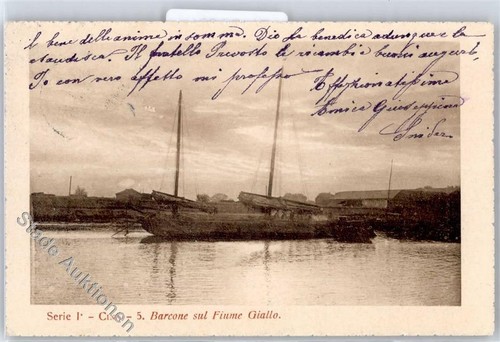 il bene dell'anime in somma. Dio la benedica adunque la
Il fratello Prevosto la ricambia buoni auguri.
Io con vero affetto mi professo
Affezionatissima
Enrica Giuseppina
Serie Iª - Cina - 5. Barcone sul Fiume Giallo.
Stade Auktionen